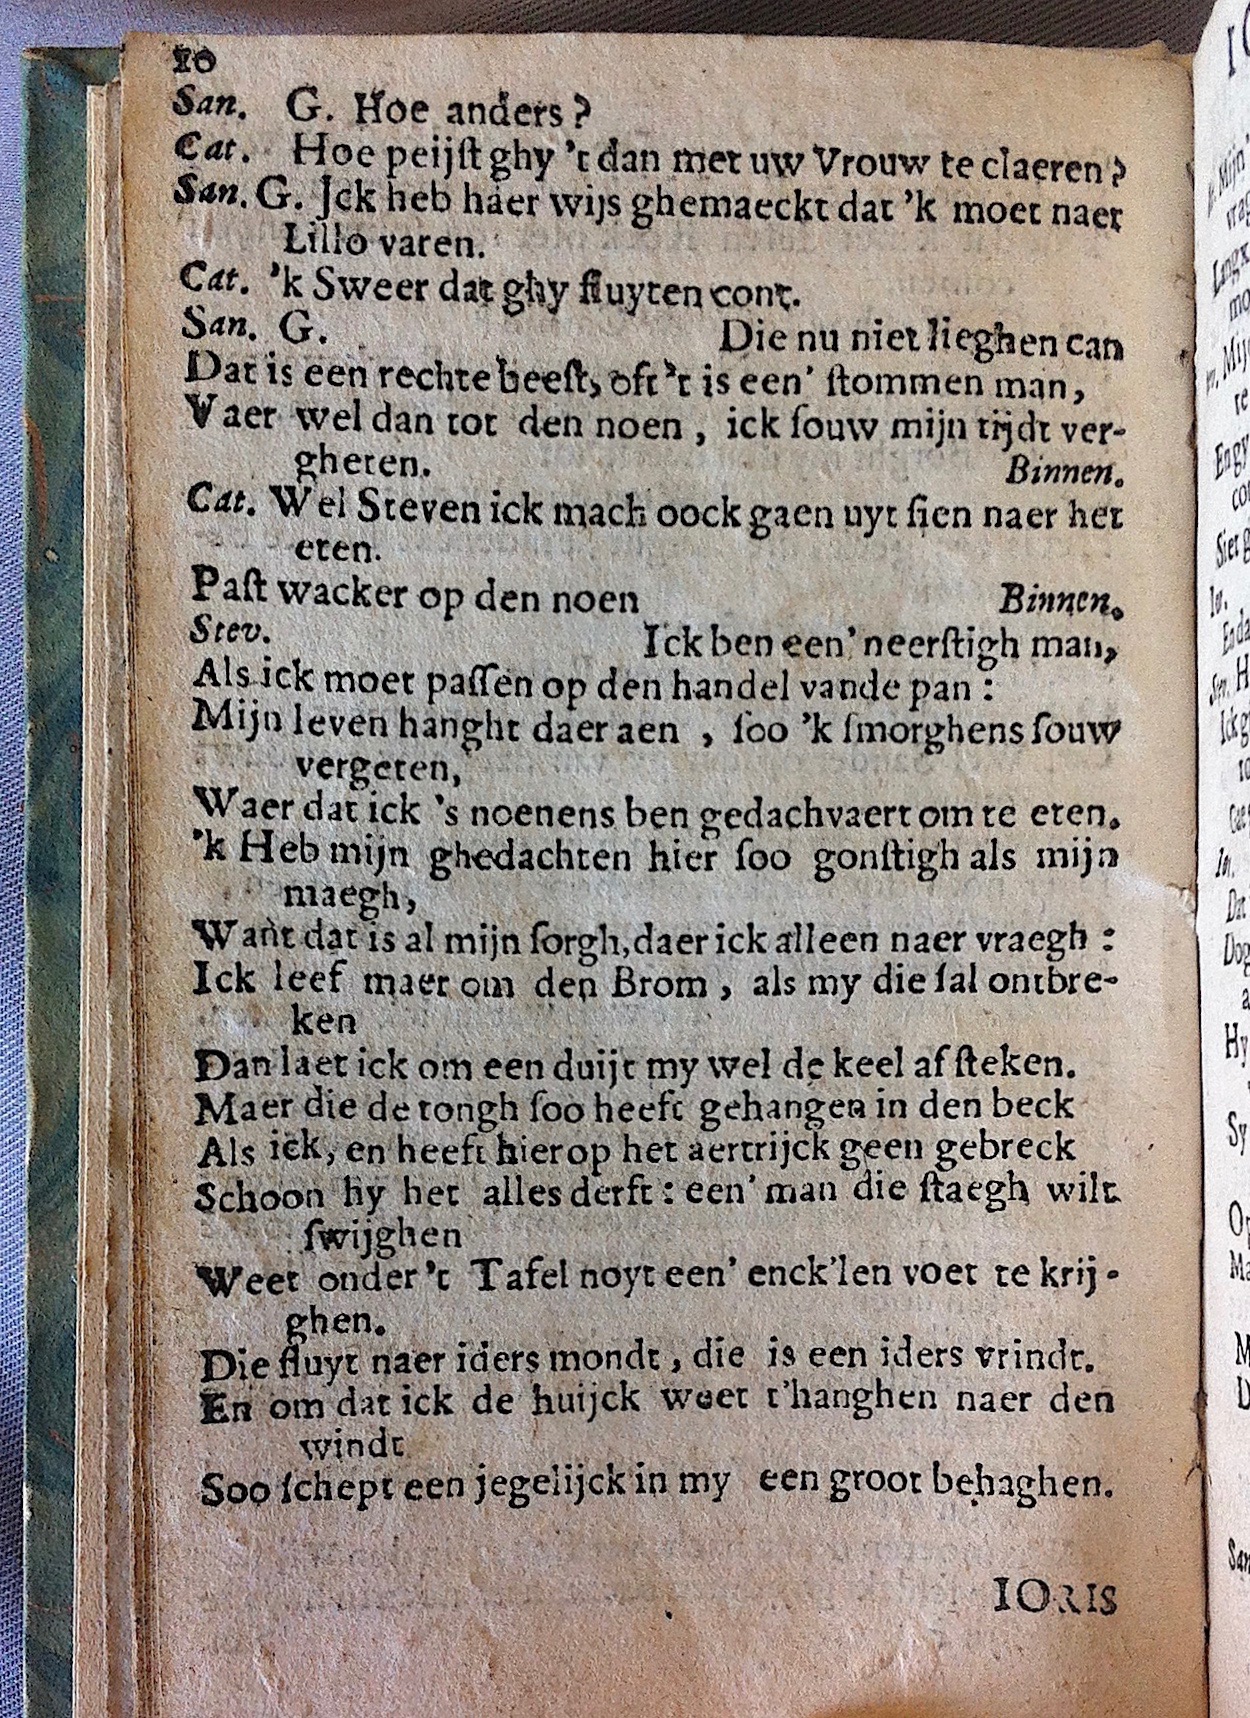 10
San. G. Hoe anders?
Cat. Hoe peijſt ghy 't dan met uw Vrouw te claeren?
San. G. Jck heb haer wijs ghemaeckt dat 'k moet naer
Lillo varen.
Cat. 'k Sweer dat ghy fluyten cont.
San. G. Die nu niet lieghen can
Dat is een rechte beeſt, oft 't is een' ſtommen man,
Vaer wel dan tot den noen, ick ſouw mijn tijdt ver-
gheten. Binnen.
Cat. Wel Steven ick mach oock gaen uyt ſien naer het
eten.
Paſt wacker op den noen Binnen.
Stev. Ick ben een' neerſtigh man,
Als ick moet paſſen op den handel vande pan:
Mijn leven hanght daer aen, ſoo 'k ſmorghens ſouw
vergeten,
Waer dat ick 's noenens ben gedachvaert om te eten.
'k Heb mijn ghedachten hier ſoo gonſtigh als mijn
maegh,
Want dat is al mijn ſorgh, daer ick alleen naer vraegh:
Ick leef maer om den Brom, als my die ſal ontbre-
ken
Dan laet ick om een duijt my wel de keel af ſteken.
Maer die de tongh ſoo heeft gehangen in den beck
Als ick, en heeft hier op het aertrijck geen gebreck
Schoon hy het alles derft: een' man die ſtaegh wilt
ſwijghen
Weet onder 't Tafel noyt een' enck'len voet te krij-
ghen.
Die fluyt naer iders mondt, die is een iders vrindt.
En om dat ick de huijck weet t'hanghen naer den
windt
Soo ſchept een jegelijck in my een groot behaghen.
IORIS